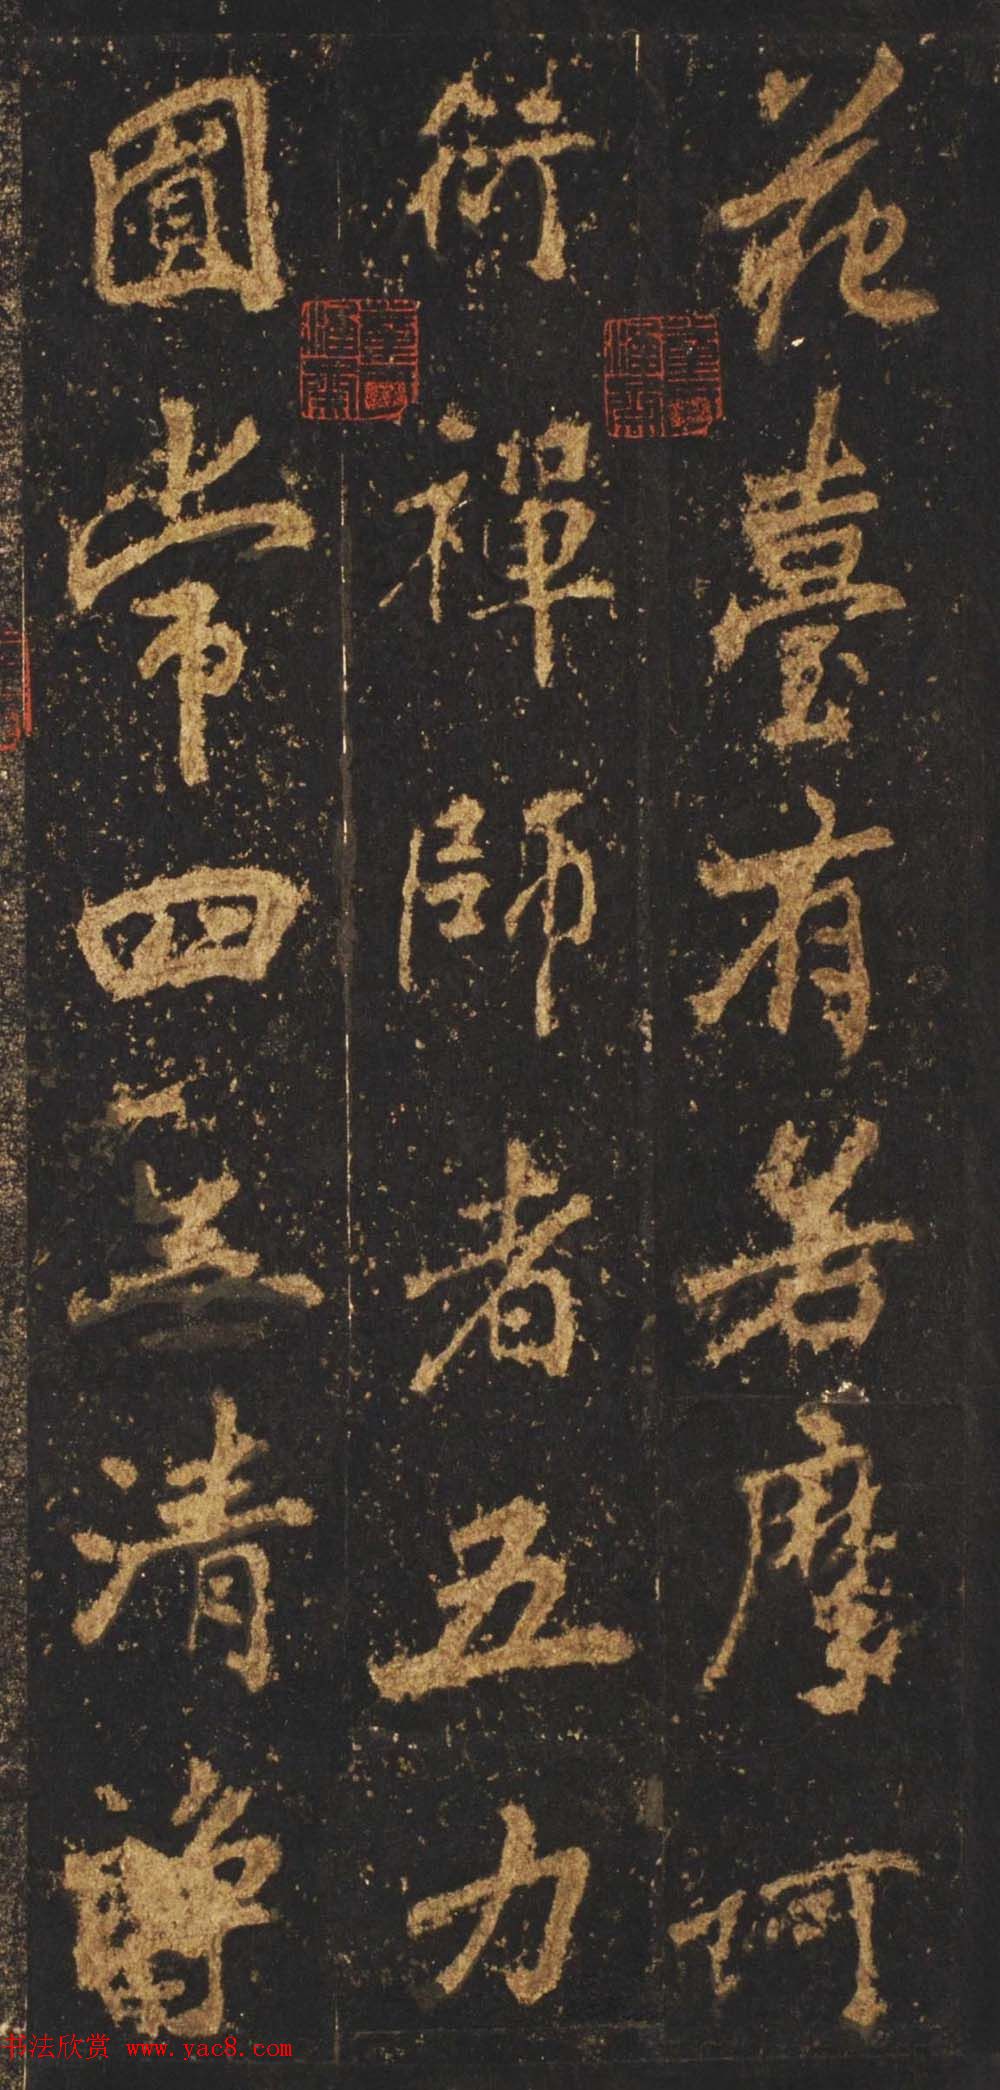 花臺有若摩訶
衍禪師者五力
圓常四清
书法欣赏 www.yac8.com